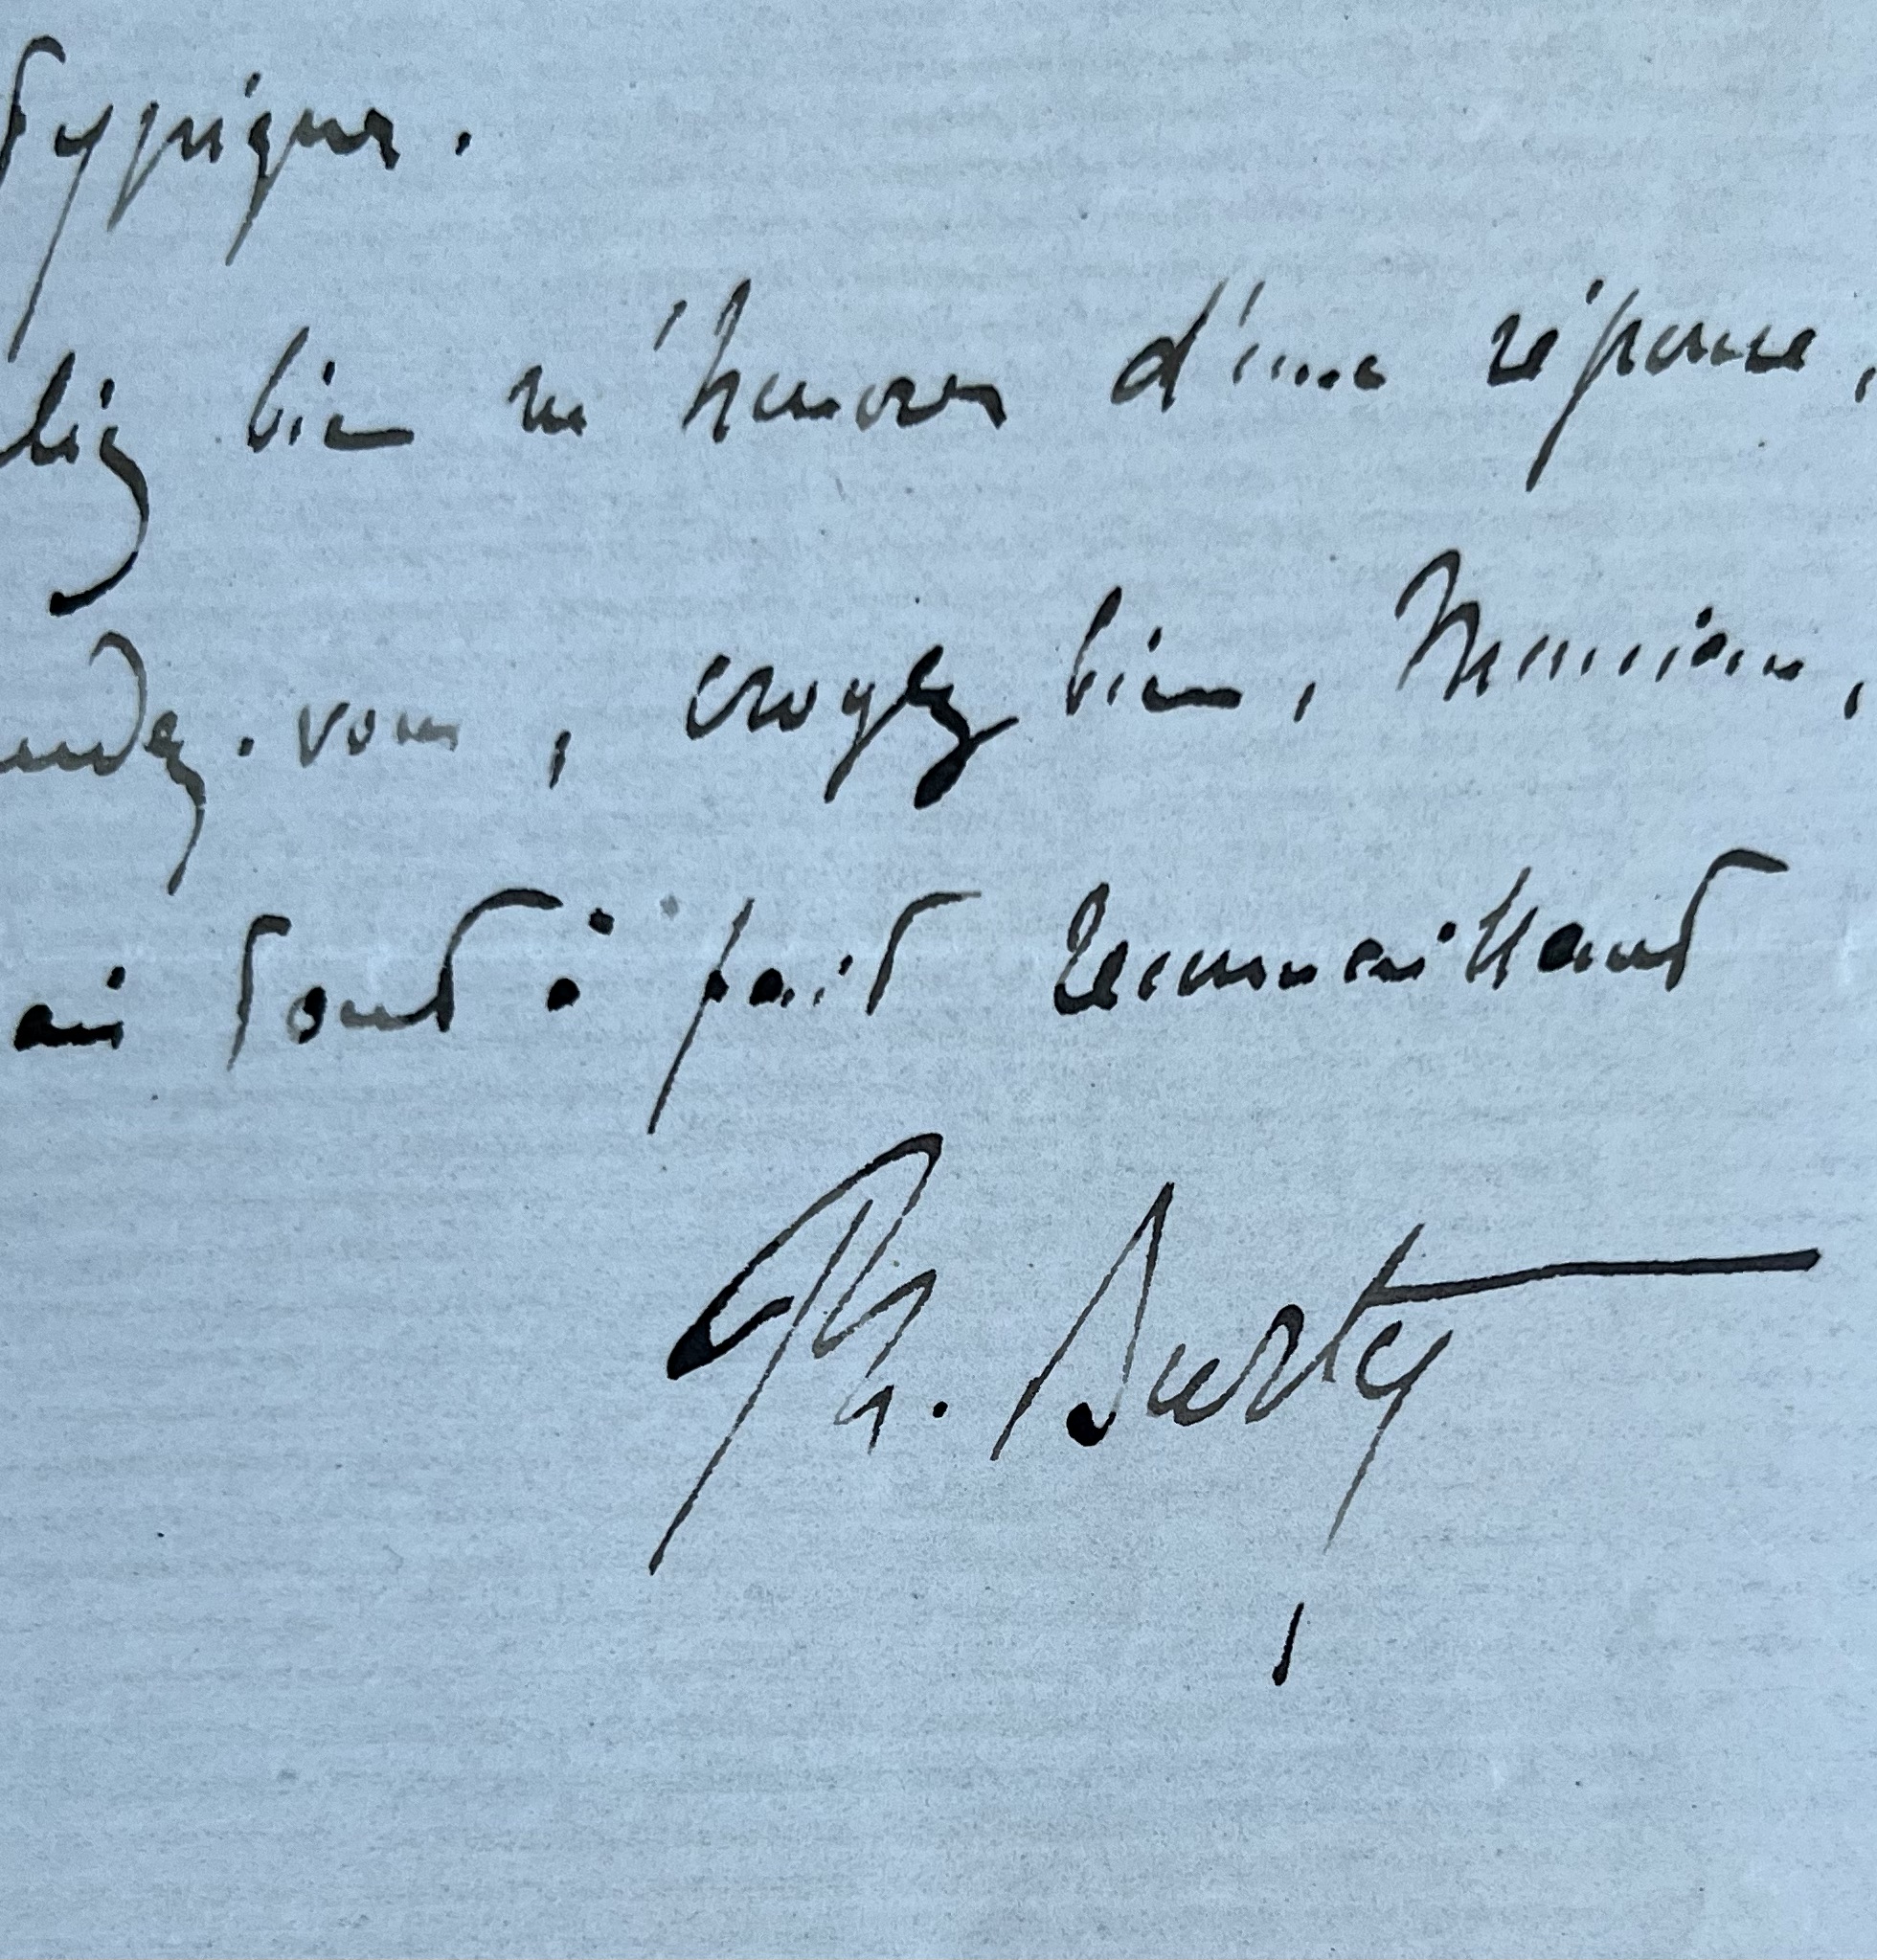 typiques.
liez bien m'honorer d'une réponse,
endez-vous, croyez bien, Monsieur,
ai tout à fait reconnaissant
Ph. Burty